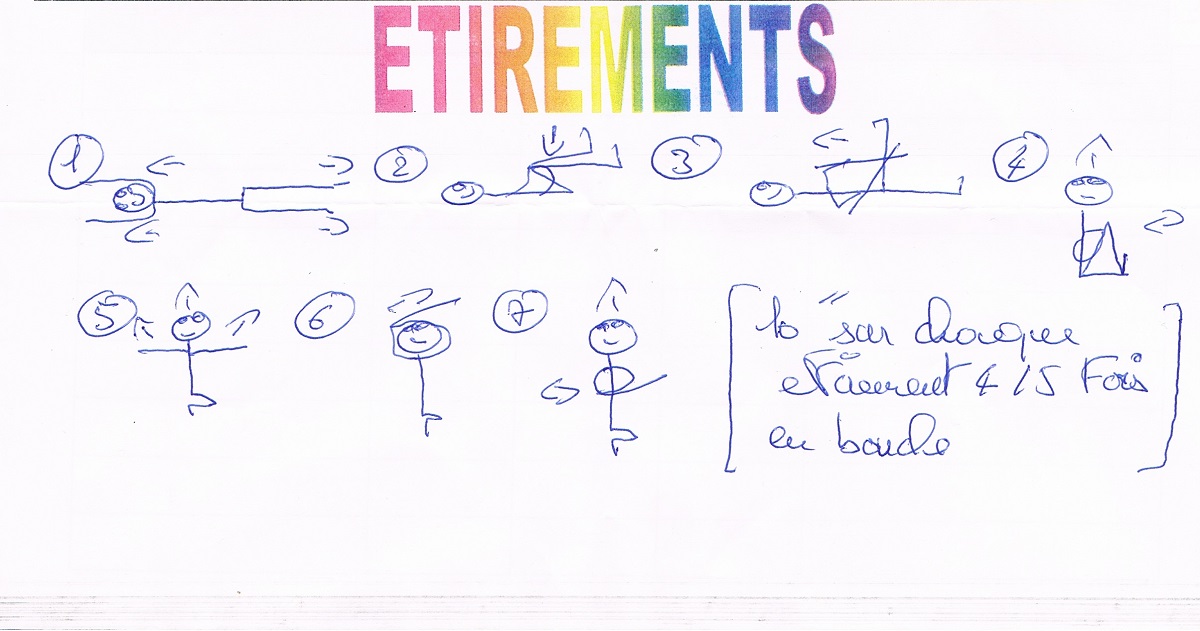 ETIREMENTS
1 2 3 4
5 6 7
10" sur chaque
etirement 4/5 Fois
en boucle